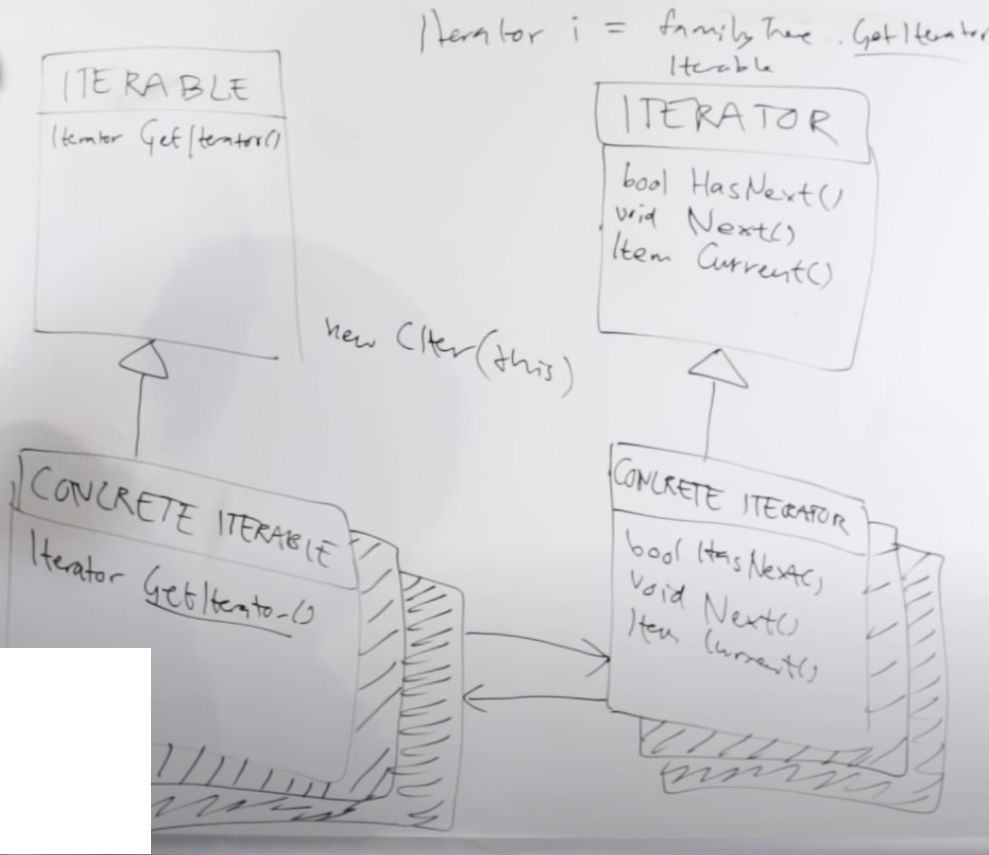 Iterator i = familyTree.GetIterator
Iterable
ITERABLE
Iterator GetIterator()
ITERATOR
bool HasNext()
void Next()
Item Current()
new CIter(this)
CONCRETE ITERABLE
Iterator GetIterator()
CONCRETE ITERATOR
bool HasNext()
void Next()
Item Current()